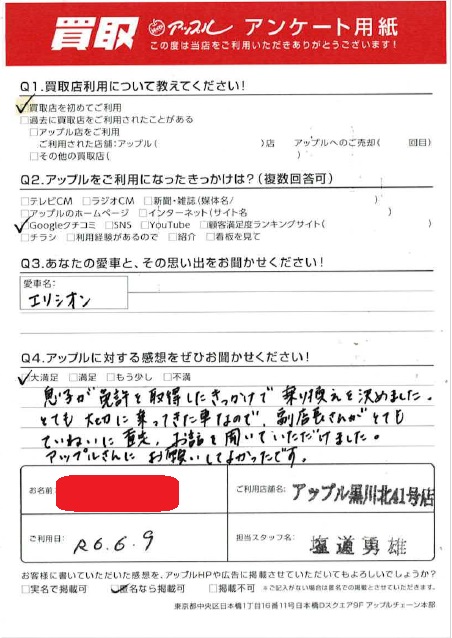 買取 アップル アンケート用紙
この度は当店をご利用いただきありがとうございます!
Q1.買取店利用について教えてください!
☑買取店を初めてご利用
□過去に買取店をご利用されたことがある
□アップル店をご利用
ご利用された店舗:アップル( )店 アップルへのご売却( 回目)
□その他の買取店( )
Q2.アップルをご利用になったきっかけは?(複数回答可)
□テレビCM □ラジオCM □新聞・雑誌(媒体名/ )
□アップルのホームページ □インターネット(サイト名 )
☑Googleクチコミ □SNS □YouTube □顧客満足度ランキングサイト( )
□チラシ □利用経験があるので □紹介 □看板を見て
Q3.あなたの愛車と、その思い出をお聞かせください!
愛車名:
エリシオン
Q4.アップルに対する感想をぜひお聞かせください!
☑大満足 □満足 □もう少し □不満
息子が免許を取得したきっかけで乗り換えを決めました。
とても大切に乗ってきた車なので、副店長さんがとても
ていねいに査定、お話を聞いていただけました。
アップルさんにお願いしてよかったです。
お名前
ご利用店舗名: アップル黒川北41号店
ご利用日: R6.6.9
担当スタッフ名: 塩道勇雄
お客様に書いていただいた感想を、アップルHPや広告に掲載させていただいてもよろしいでしょうか?
□実名で掲載可 ☑匿名なら掲載可 □掲載不可 ※ご記入がない場合は匿名での掲載とさせていただきます。
東京都中央区日本橋1丁目16番11号日本橋Dスクエア9F アップルチェーン本部